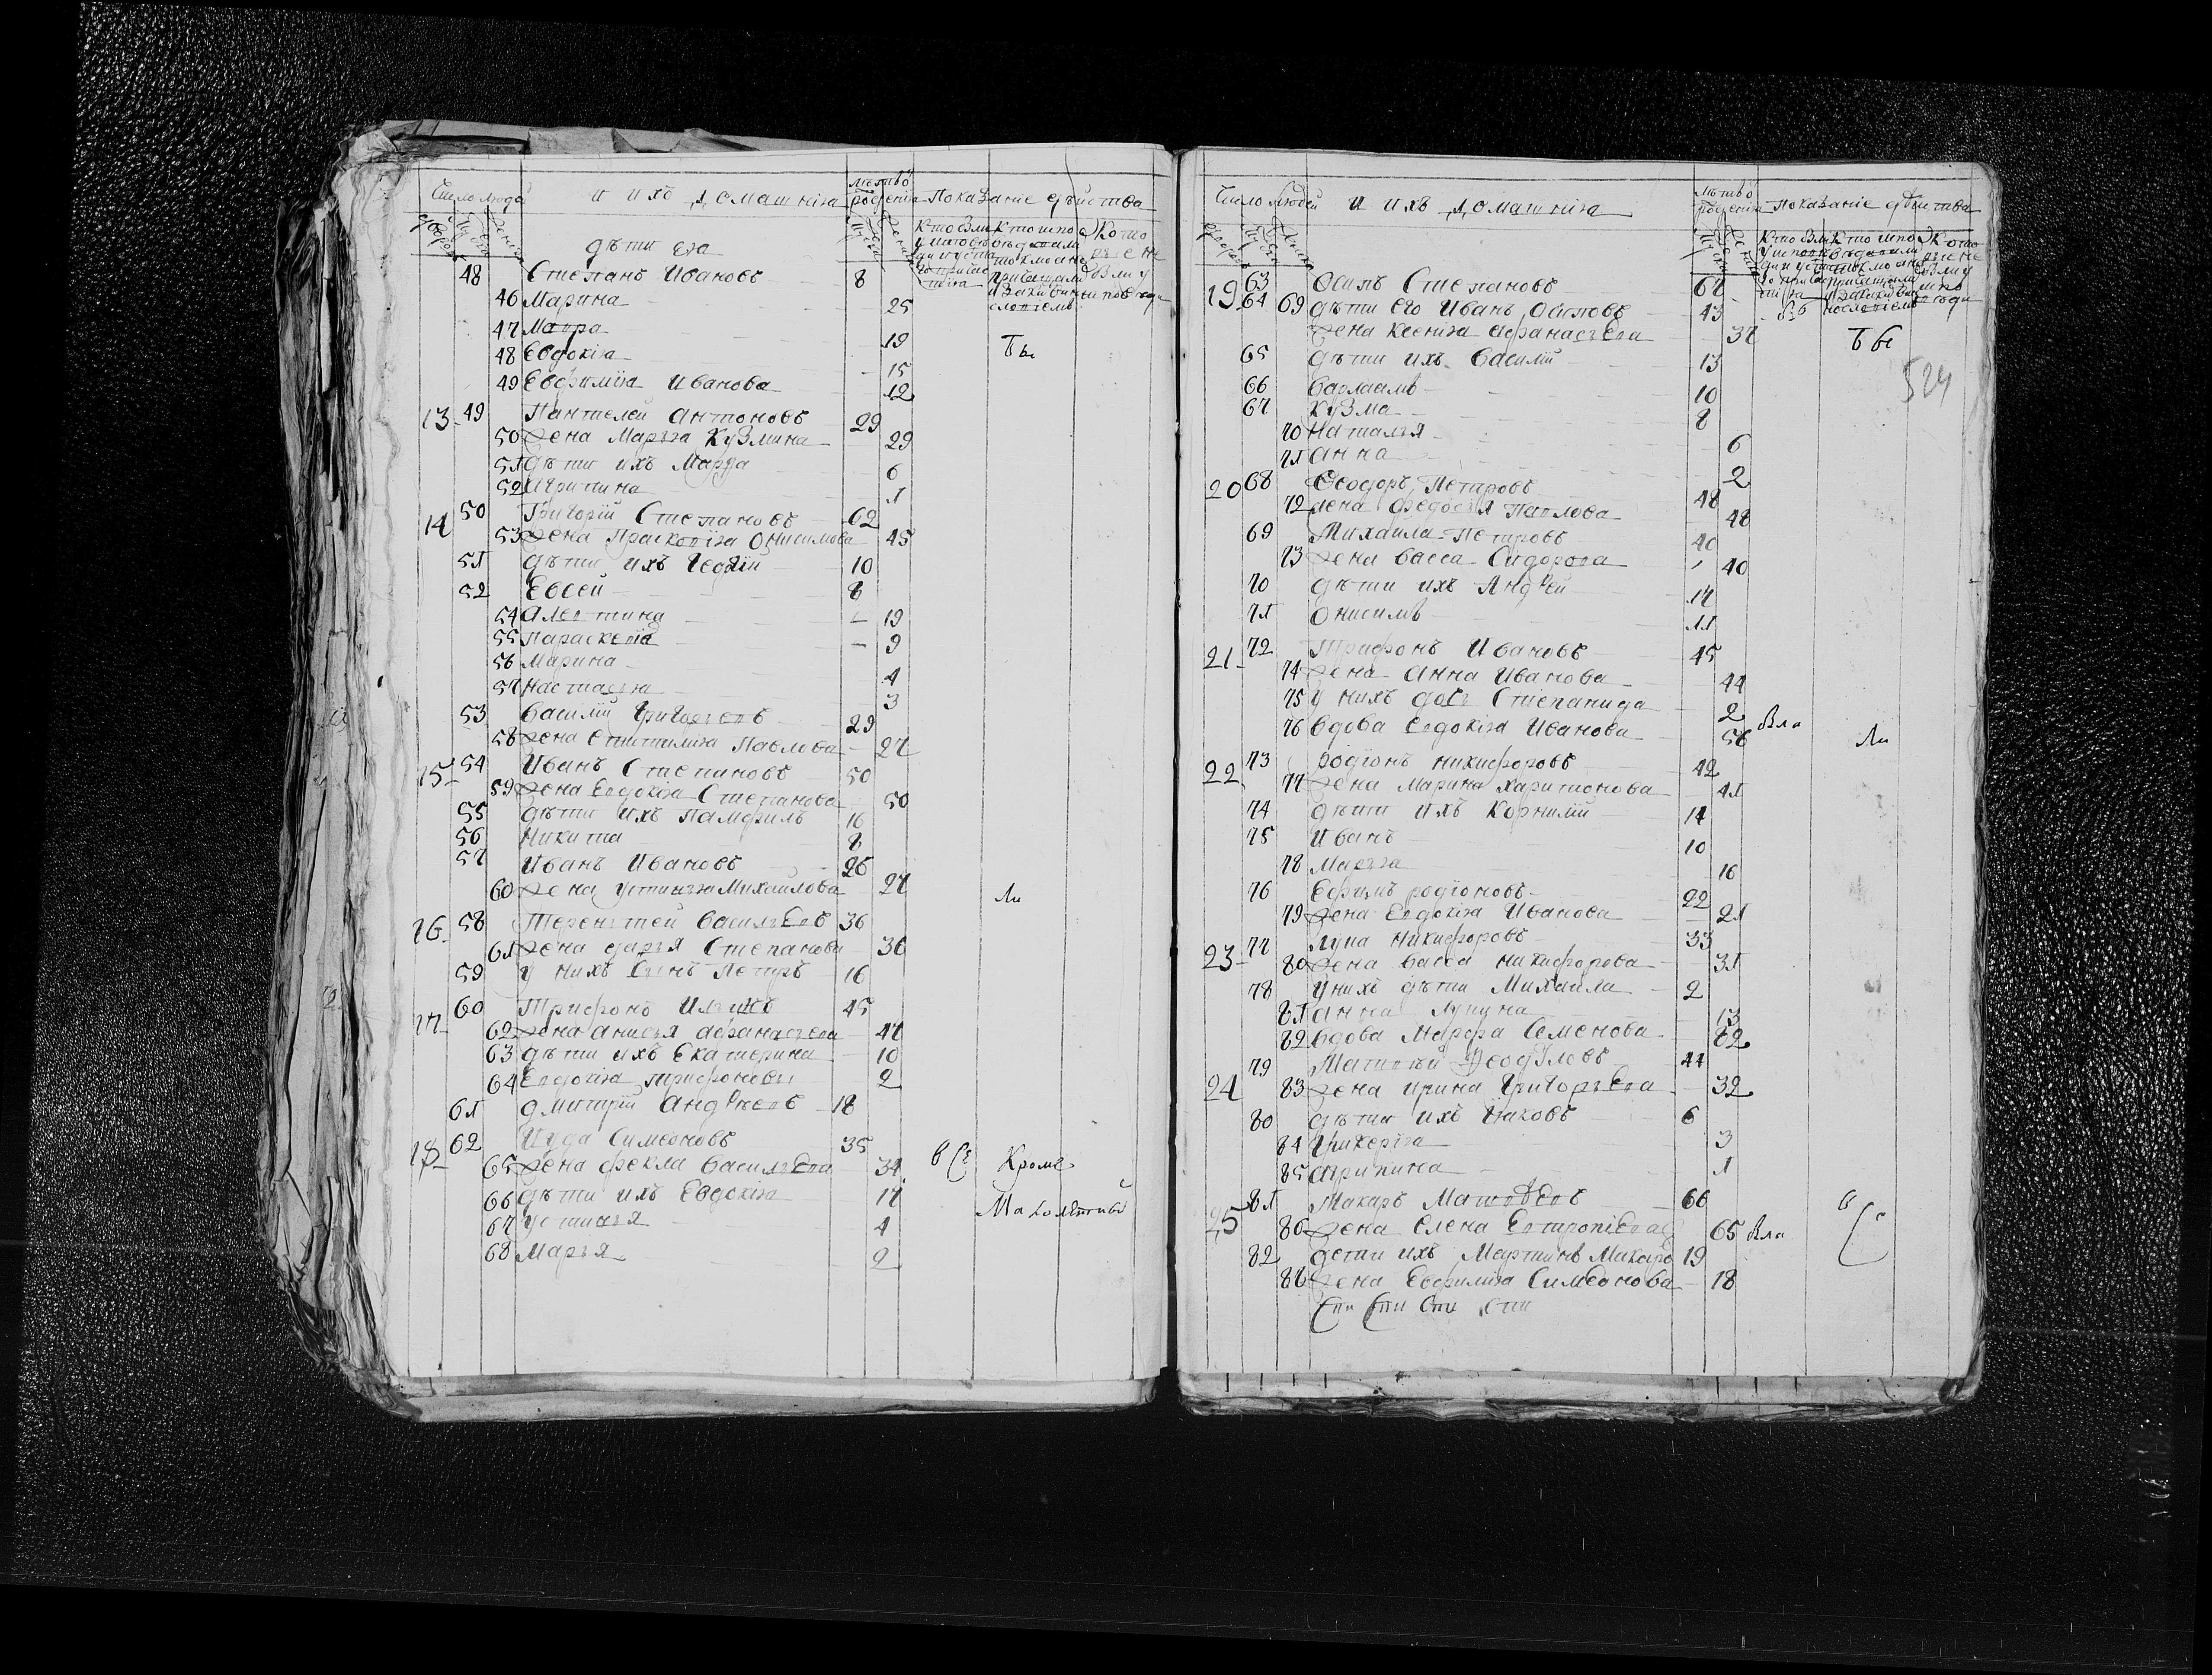 Число людей и ихъ домашнія лѣтъ ѿ рожденія Показаніе дѣйства
дворовъ мужеска женска
дѣти ея
48 Стеѳанъ Ивановъ 8
46 Марина 25
47 Мавра 19 Бы
48 Евдокіа 15
49 Евфиміа Иванова 12
13 49 Пантелей Антоновъ 29
50 жена Марѳа Кузмина 29
51 дѣти ихъ Марѳа 6
52 Агрипина 1
14 50 Григорій Степановъ 62
53 жена Прасковіа Онисимова 45
51 дѣти ихъ 10
52 Евсей 8
54 19
55 Параскевіа 9
56 Марина 4
57 Настасья 3
53 Василій Григорьевъ 29
58 жена Павлова 27
15 54 Иванъ Степановъ 50
59 жена Евдокіа Степанова 50
55 дѣти ихъ Памфилъ 16
56 Никита 8
57 Иванъ Ивановъ 26
60 жена Устинья Михайлова 27 Ли
16 58 Терентей Васильевъ 36
61 жена дарья Степанова 36
59 у нихъ сынъ Петръ 16
17 60 Трифонъ 45
62 жена Анисья Афанасьева 47
63 дѣти ихъ Екатерина 10
64 Евдокіа Трифоновы 2
61 Дмитрій Андреевъ 18
18 62 Иуда Симеоновъ 35
65 жена Фекла Васильева 34 Кроме
66 дѣти ихъ Евдокіа 17 Малолѣтныхъ
67 Устинья 4
68 Марья 2
Число людей и ихъ домашнія лѣтъ ѿ рожденія Показаніе дѣйства
524
19 63 Осипъ Степановъ 67
64 69 дѣти его Иванъ Осиповъ 43
жена Ксеніа Афанасьева 37 Бы
65 дѣти ихъ Василій 13
66 Варлаамъ 10
67 Кузма 8
70 Наталья 6
71 Анна 2
20 68 Ѳеодоръ Петровъ 48
72 жена Федосья Павлова 48
69 Михайла Петровъ 40
73 жена Васса Сидорова 40
70 дѣти ихъ Андрей 17
71 Онисимъ 11
21 72 Трифонъ Ивановъ 45
74 жена Анна Иванова 44
75 у нихъ дочь Степанида 2
76 Вдова Евдокіа Иванова 56 Вла Ли
22 73 Родіонъ Никифоровъ 42
77 жена Марина Харитонова 41
74 дѣти ихъ Корнилій 14
75 Иванъ 10
78 Марѳа 16
76 Ефимъ Родіоновъ 22
79 жена Евдокіа Иванова 21
23 77 Лупа Никифоровъ 33
80 жена Васса Никифорова 31
78 у нихъ дѣти Михайла 2
81 Анна Лупуна 13
82 Вдова Марфа Семенова 62
24 79 Матвѣй Ѳеодуловъ 44
83 жена Ирина Григорьева 32
80 дѣти ихъ Іяковъ 6
84 Гликеріа 3
85 Агрипина 1
25 81 Макаръ Матвѣевъ 66
86 жена Елена Евтропіева 65 Вла
82 дети ихъ Мартинъ Макаро 19
86 жена Евфиміа Симеонова 18